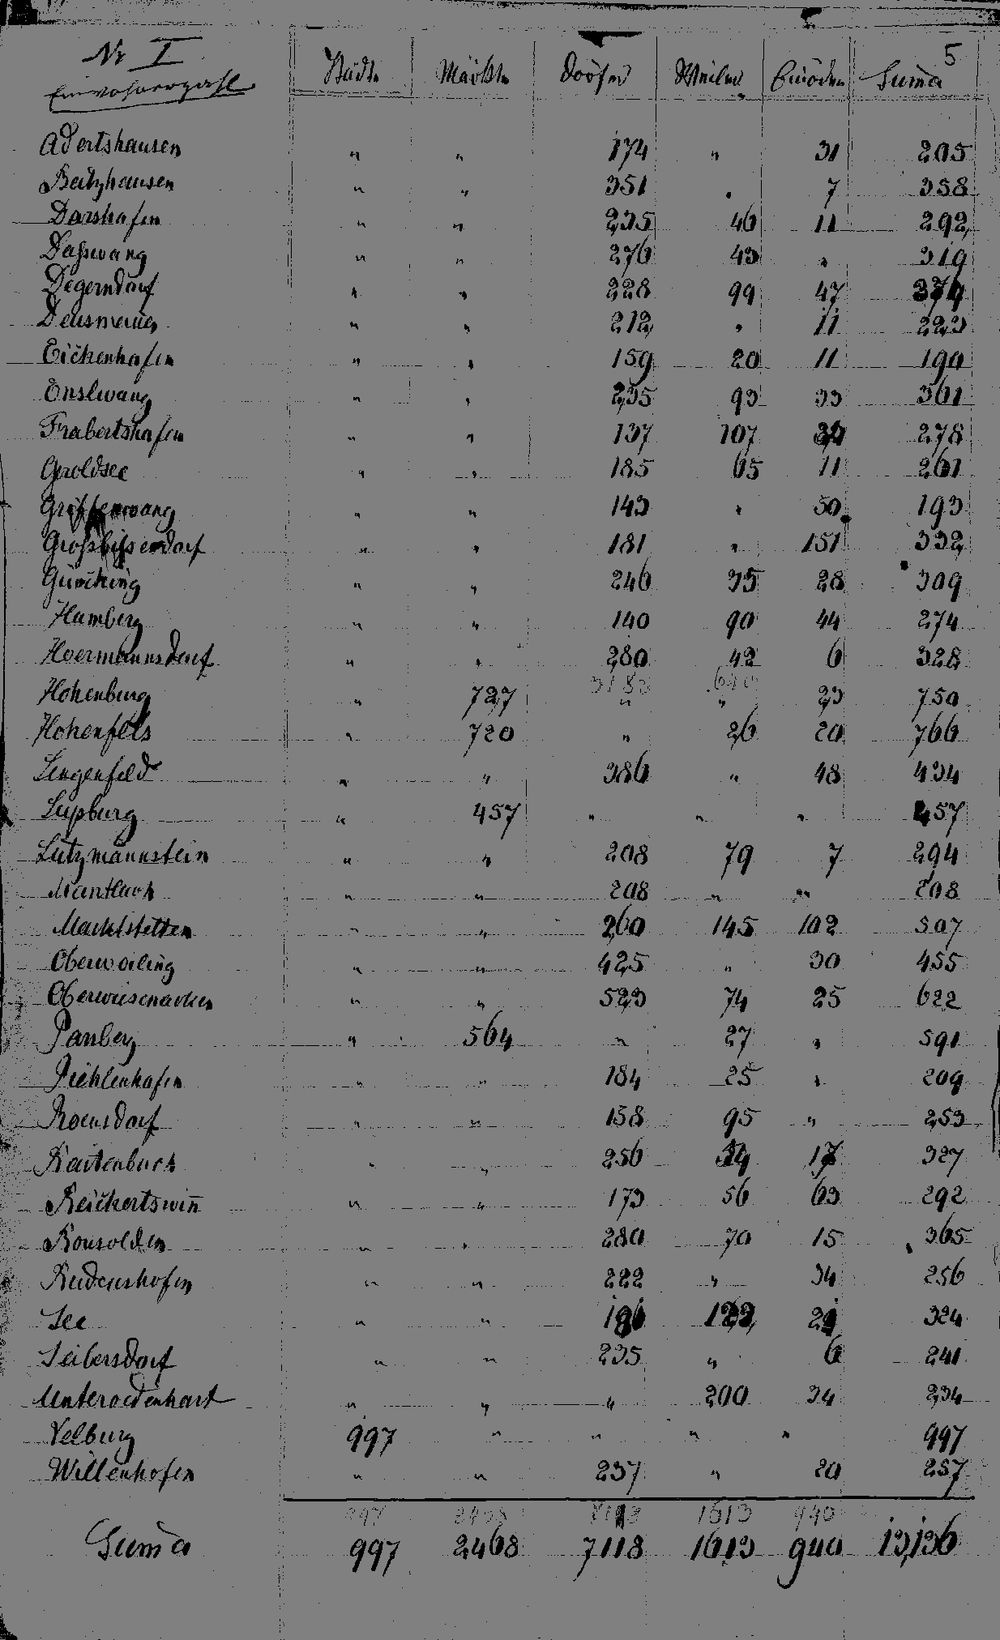 5
No I Städte Märkte Dörfer Weiler Einöden Suma
Einwohnerzahl
Adertshausen " " 174 " 31 205
Batzhausen " " 351 " 7 358
Darshofen " " 235 46 11 292
Daßwang " " 276 43 " 319
Degerndorf " " 228 99 47 374
Deusmauer " " 212 " 11 223
Eichenhofen " " 159 20 11 190
Enslwang " " 235 93 33 361
Frabertshofen " " 137 107 34 278
Geroldsee " " 185 65 11 261
Griffenwang " " 143 " 50 193
Großbissendorf " " 181 " 151 332
Günching " " 246 35 28 309
Hamberg " " 140 90 44 274
Hoermannsdorf " " 280 42 6 328
Hohenburg " 727 " " 23 750
Hohenfels " 720 " 26 20 766
Lengenfeld " " 386 " 48 434
Lupburg " 457 " " " 457
Lutzmannstein " " 208 79 7 294
Mantlach " " 208 " " 208
Marktstetten " " 260 145 102 507
Oberweiling " " 425 " 30 455
Oberwiesenacker " " 523 74 25 622
Parsberg " 564 " 27 " 591
Pichlenhofen " " 184 25 " 209
Roensdorf " " 158 95 " 253
Raitenbuch " " 256 54 17 327
Reichertswin̄ " " 173 56 63 292
Ronsolden " " 280 70 15 365
Rudenshofen " " 222 " 34 256
See " " 181 122 21 324
Seibersdorf " " 235 " 6 241
Unteroedenhart " " " 200 34 234
Velburg 997 " " " " 997
Willenhofen " " 237 " 20 257
Suma 997 2468 7118 1613 940 13,136